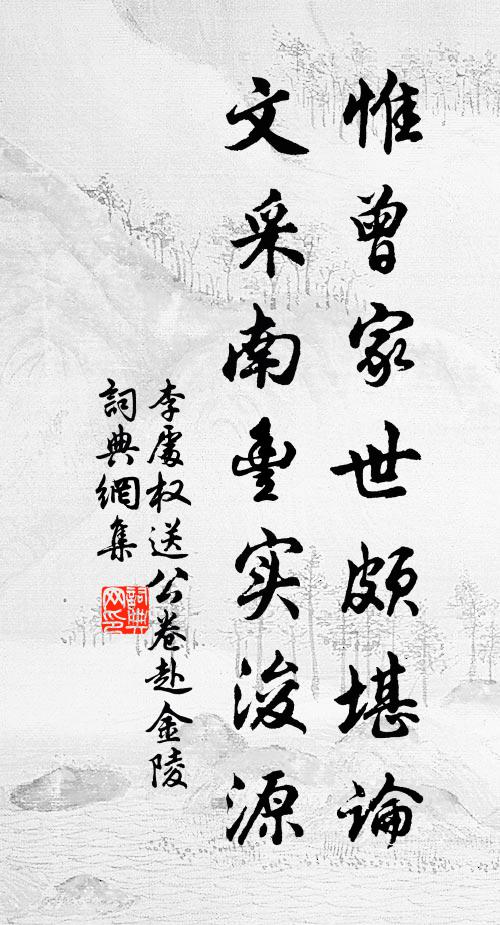 惟曾家世颇堪论
文采南豊实浚源
李處权送公卷赴金陵
詞典網集
詞典网印